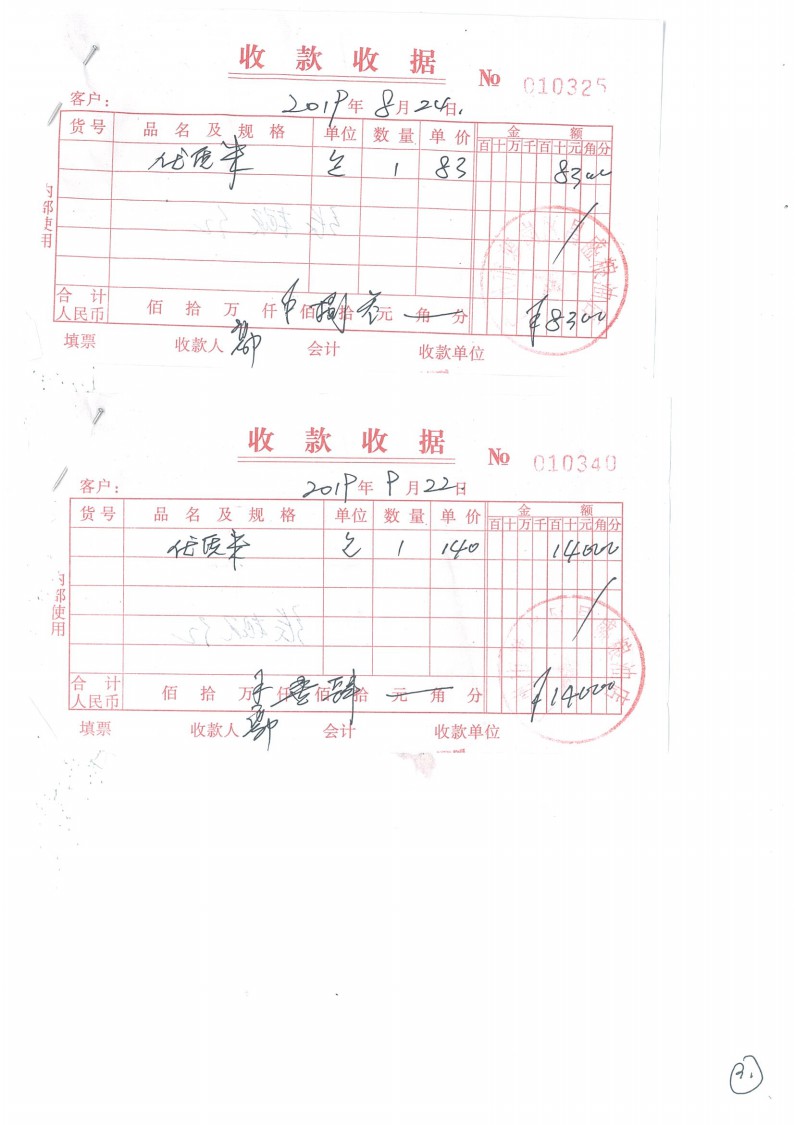 收款收据
№ 010325
客户： 2019年8月24日.
货号 品名及规格 单位 数量 单价 金额
百十万千百十元角分
优质米 1 83 8300
内部使用
合计人民币 佰拾万仟佰捌拾叁元角分 ¥8300
填票 收款人 会计 收款单位
收款收据
№ 010340
客户： 2019年9月22日
货号 品名及规格 单位 数量 单价 金额
百十万千百十元角分
优质米 1 140 14000
内部使用
合计人民币 佰拾万仟壹佰肆拾元角分 ¥14000
填票 收款人 会计 收款单位